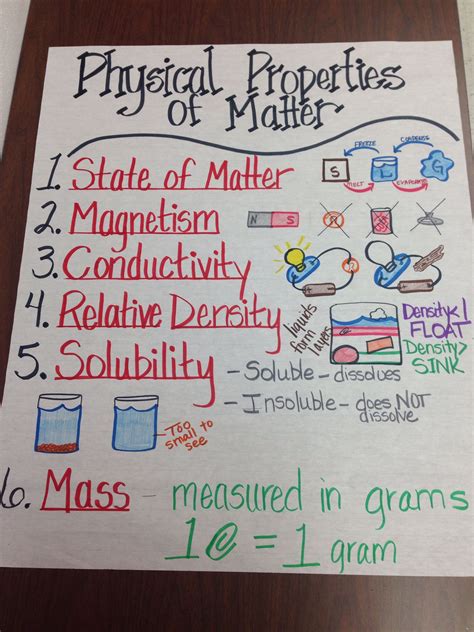 Physical Properties
of Matter
1. State of Matter
FREEZE CONDENSE
S L G
MELT EVAPORATE
2. Magnetism
N S
3. Conductivity
4. Relative Density
liquids
form
layers
Density<1
FLOAT
Density>
SINK
5. Solubility
- Soluble - dissolves
- Insoluble - does NOT
dissolve
Too
small to
see
6. Mass - measured in grams
1 = 1 gram